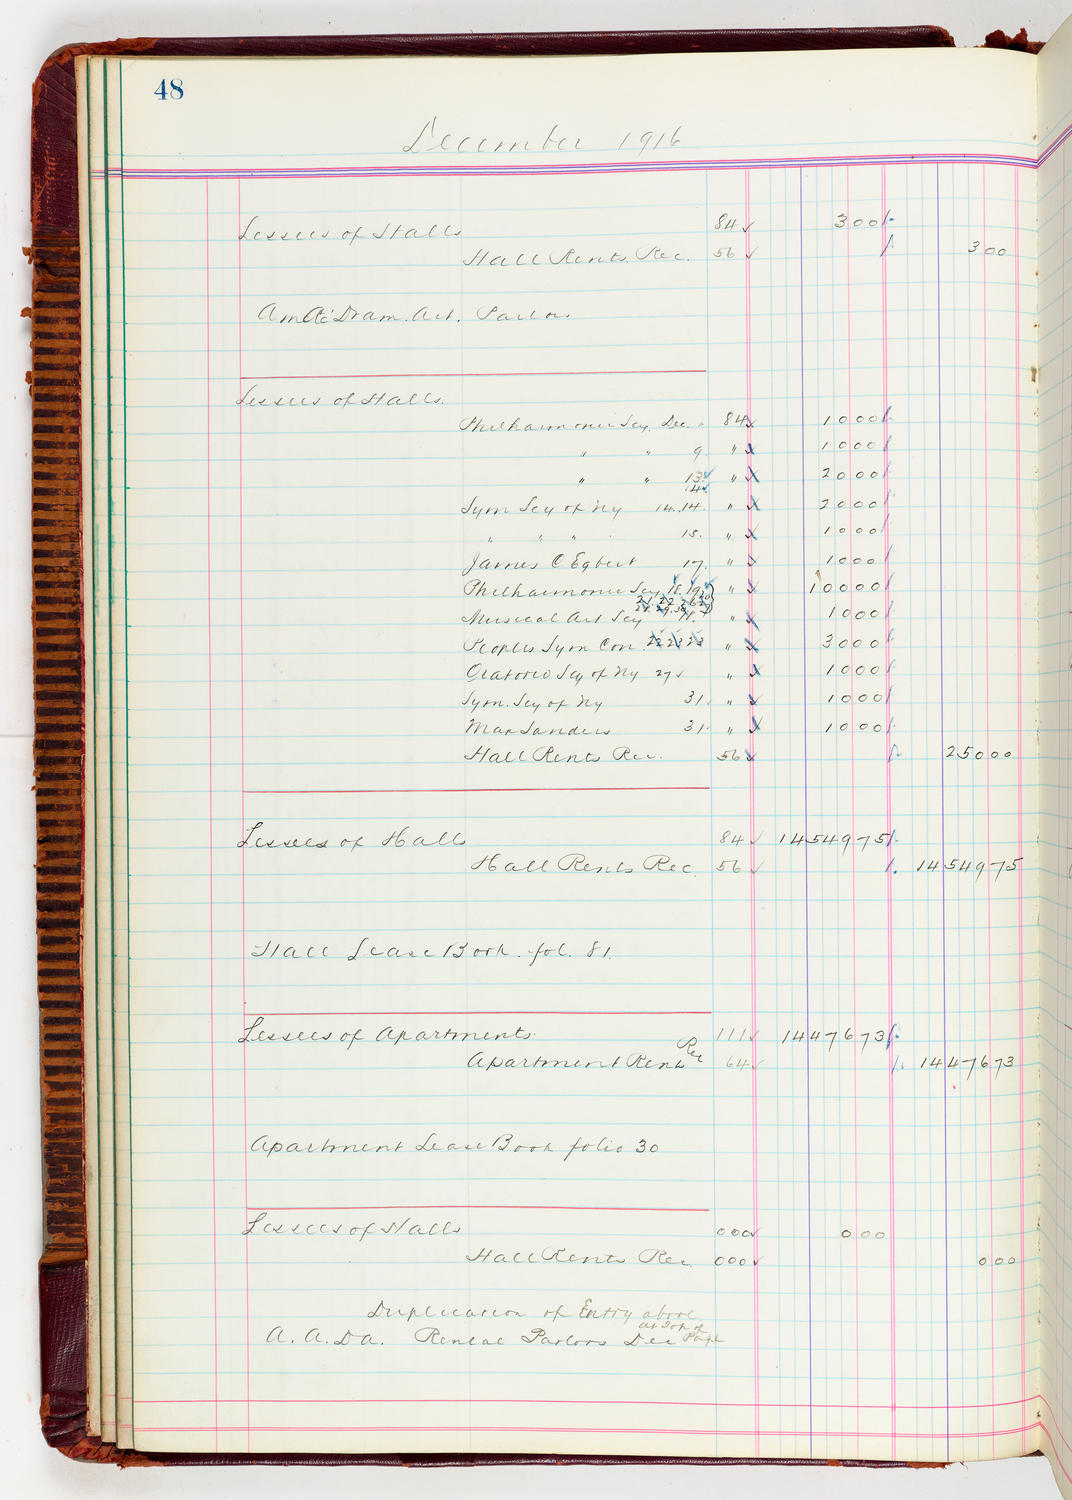 48
December 1916
Lessees of Halls 84 ✓ 300
Hall Rents Rec. 56 ✓ 300
Am Ac Dram. Art. Parlors
Lessees of Halls.
Philharmonic Socy. Dec. 84 ✓ 1000
" " 9 " ✓ 1000
" " 13 ✓ " ✓ 2000
14 ✓
Sym Socy of Ny 14.14. " ✓ 2000
" " " 15. " ✓ 1000
James C Egbert 17. " ✓ 1000
Philharmonic Socy 18. 19 " ✓ 10000
Musical Art Socy " ✓ 1000
Peoples Sym Con. 22 23 23 " ✓ 3000
Oratorio Socy of Ny 27 ✓ " ✓ 1000
Sym. Socy of Ny 31. " ✓ 1000
Max Sanders 31. " ✓ 1000
Hall Rents Rec. 56 ✓ 25000
Lessees of Halls 84 ✓ 1454975
Hall Rents Rec. 56 ✓ 1454975
Hall Lease Book. fol. 81.
Lessees of Apartments. 111 ✓ 1447673
Apartment Rents Rec 64 ✓ 1447673
Apartment Lease Book folio 30
Lessees of Halls 000 ✓ 000
Hall Rents Rec. 000 ✓ 000
Duplication of Entry above
at Top of
A. A. D A. Rental Parlors Dec Page